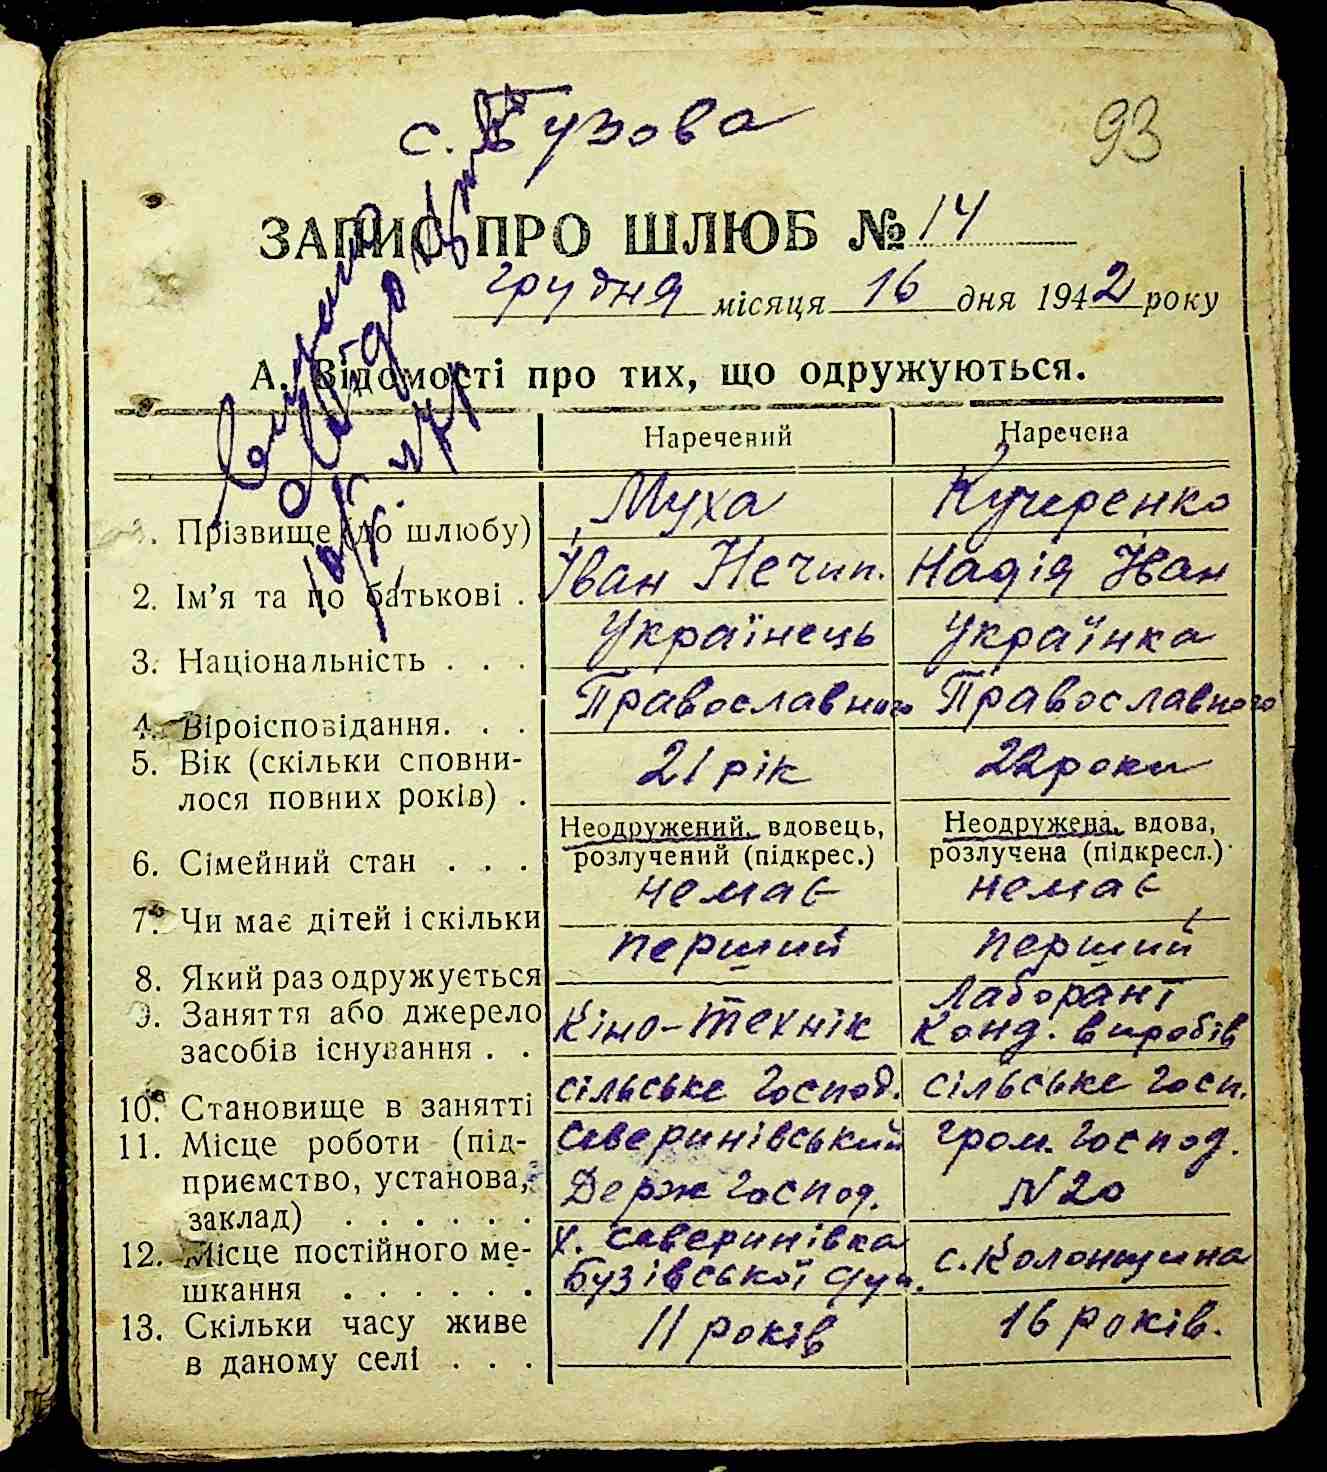 с. Бузова
93
ЗАПИС ПРО ШЛЮБ № 14
грудня місяця 16 дня 1942 року
А. Відомості про тих, що одружуються.
Наречений Наречена
1. Прізвище (до шлюбу) Муха Кучеренко
2. Ім'я та по батькові . Іван Нечип. Надія Іван
3. Національність . . . Українець Українка
4. Віроісповідання. . . Православного Православного
5. Вік (скільки сповни-
лося повних років) . 21 рік 22 роки
6. Сімейний стан . . . Неодружений, вдовець, розлучений (підкрес.) Неодружена, вдова, розлучена (підкресл.)
7. Чи має дітей і скільки немає немає
8. Який раз одружується перший перший
9. Заняття або джерело
засобів існування . . Кіно-технік Лаборант конд. виробів
10. Становище в занятті сільське господ. сільське госп.
11. Місце роботи (під-
приємство, установа,
заклад) . . . . . . Северинівський Держ господ. гром. господ. N 20
12. Місце постійного ме-
шкання . . . . . . х. Северинівка Бузівської с. Колонщина
13. Скільки часу живе
в даному селі . . . 11 років 16 років.